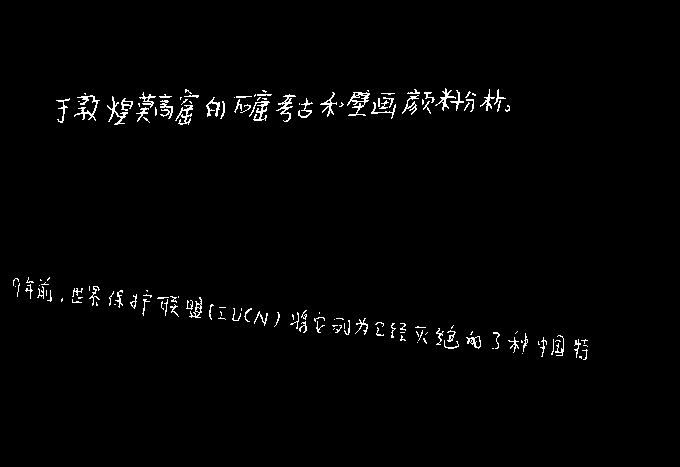 于敦煌莫高窟的石窟考古和壁画颜料分析。
9年前，世界保护联盟(IUCN)将它列为已经灭绝的3种中国特